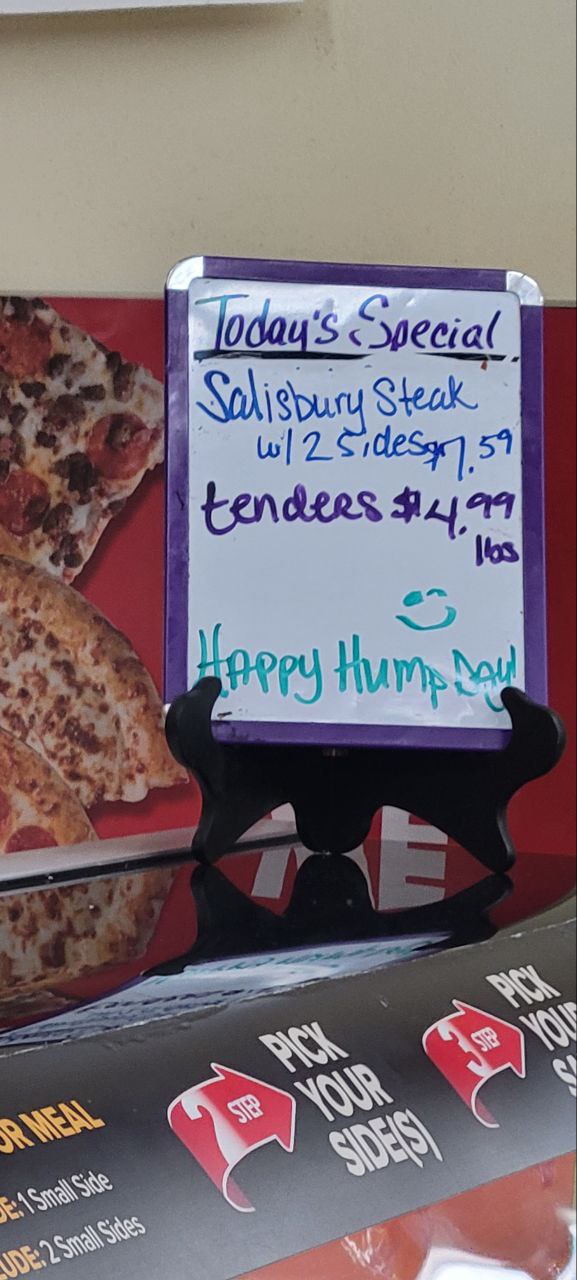 Today's Special
Salisbury Steak
w/ 2 sides $7.59
tenders $4.99
lbs
Happy Hump Day!
ME
2 STEP
PICK
YOUR
SIDE(S)
3 STEP
PICK
OR MEAL
DE: 1 Small Side
UDE: 2 Small Sides